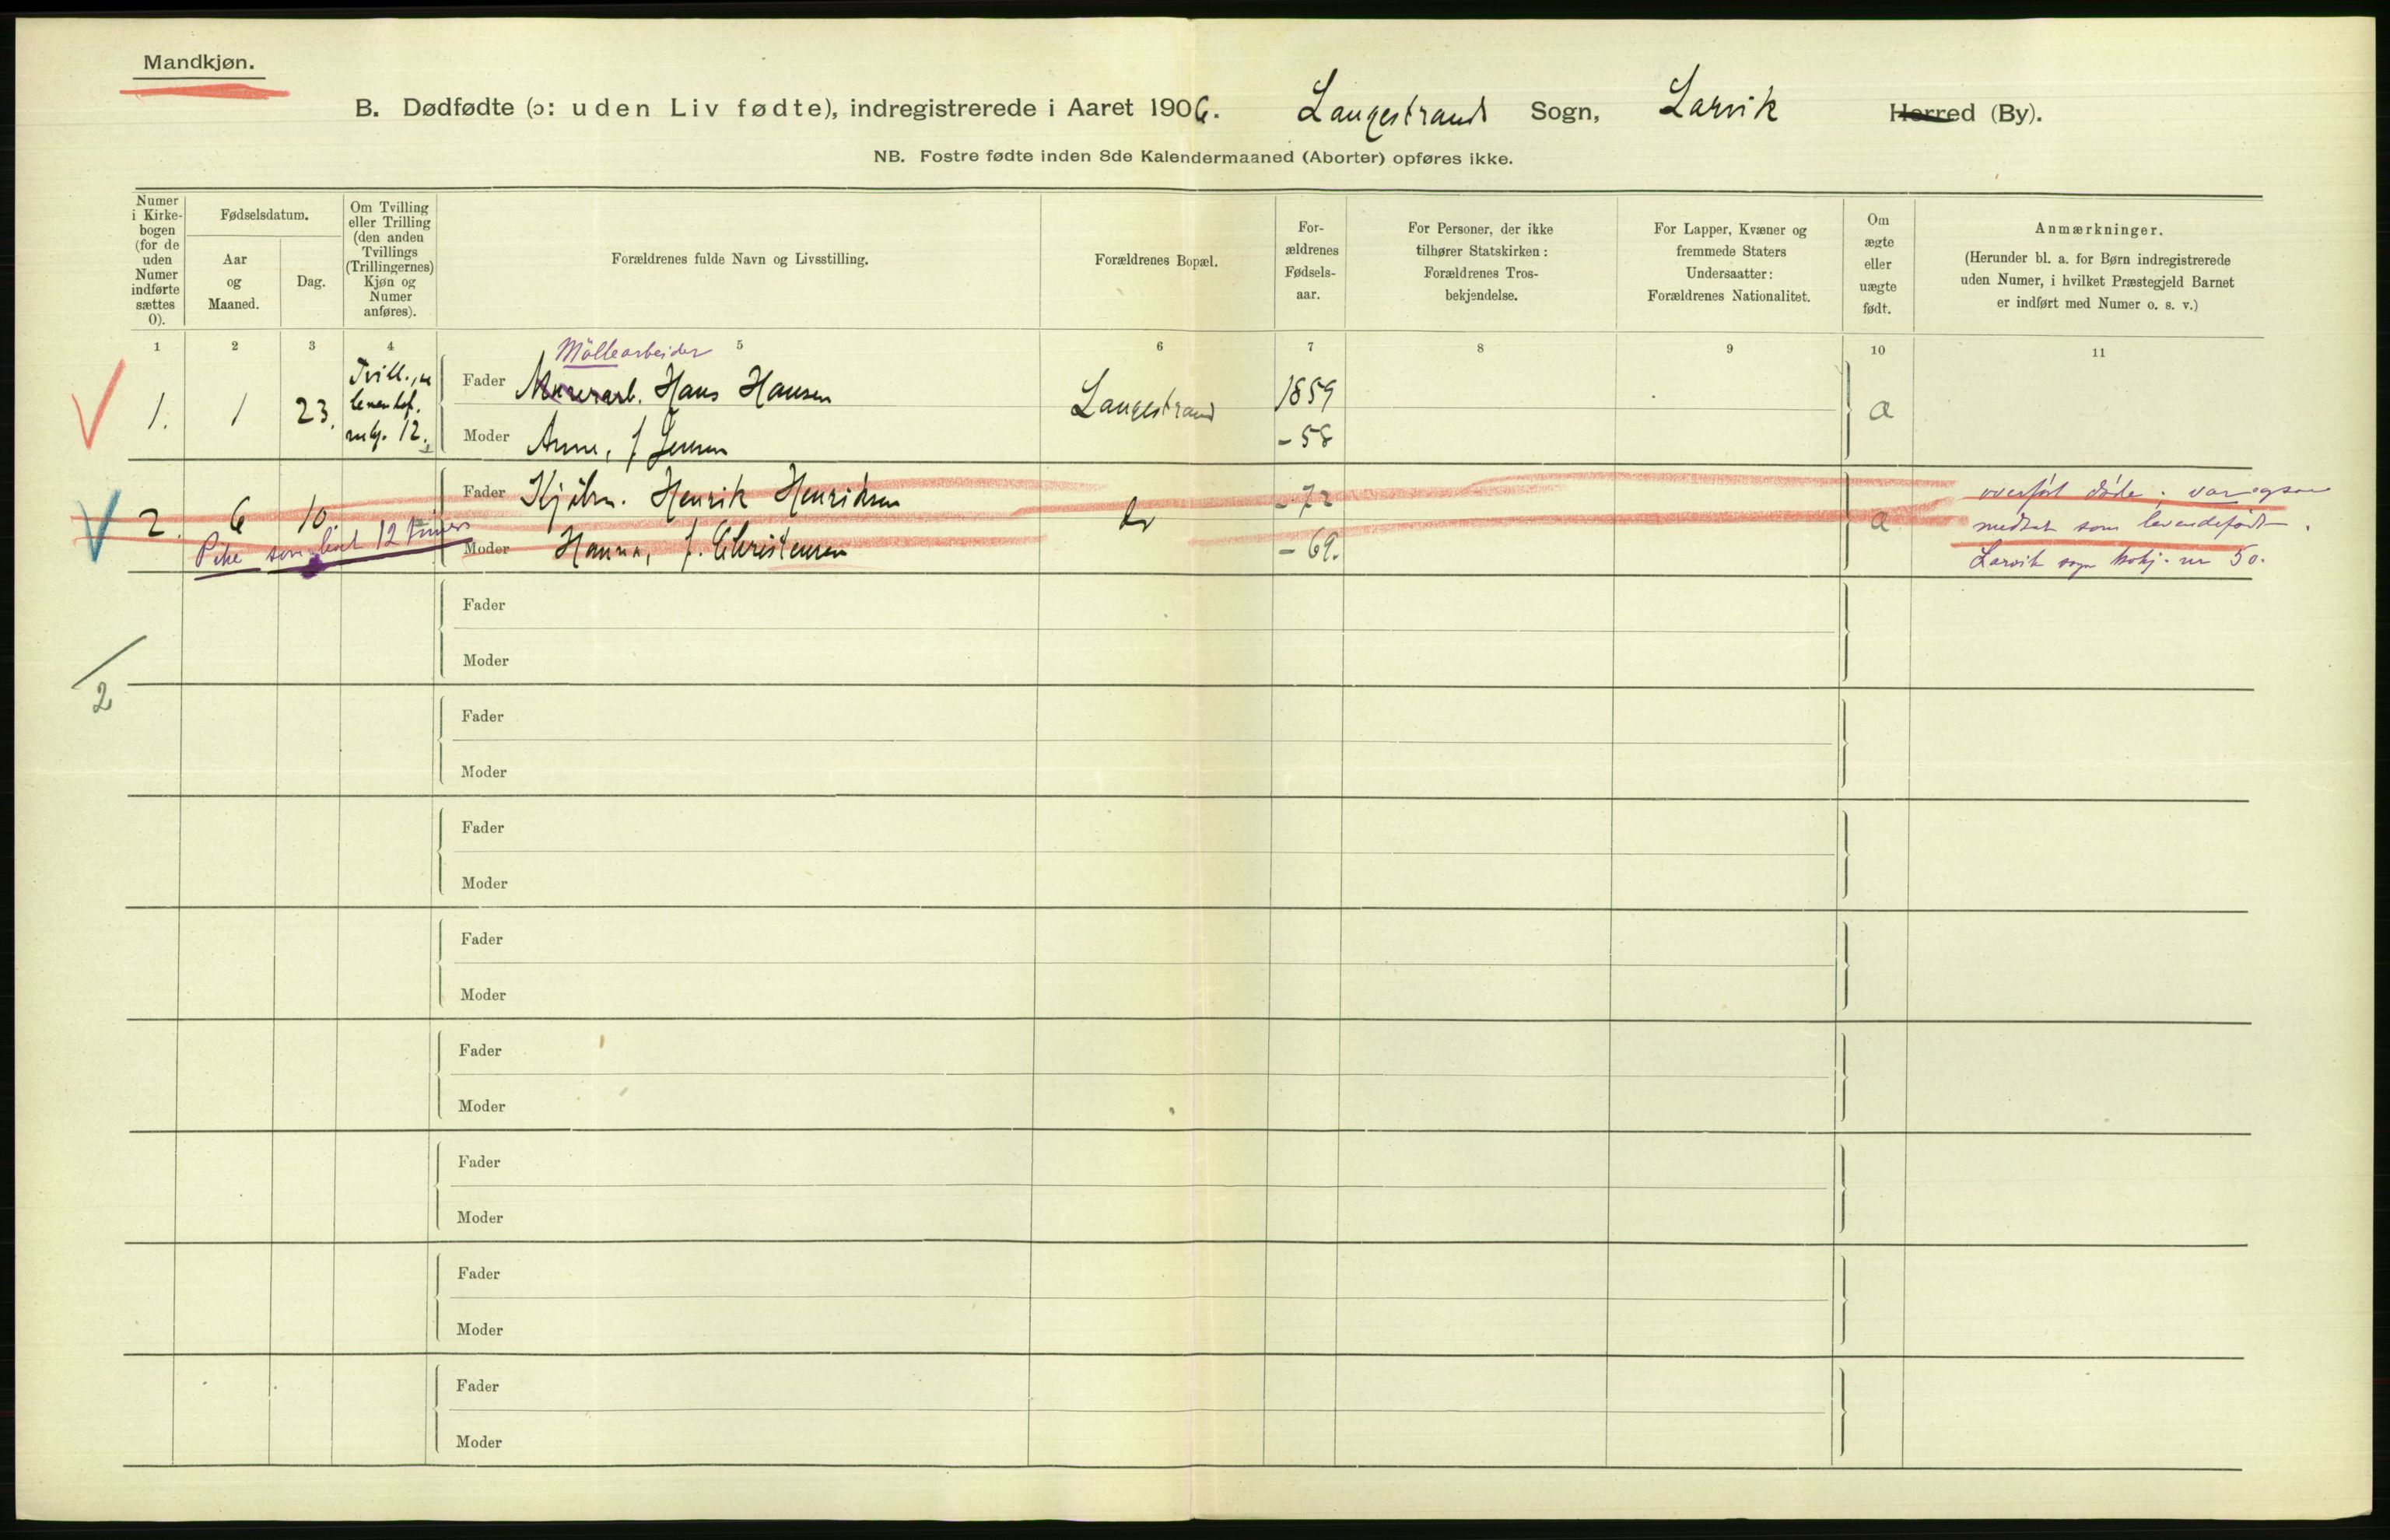 Mandkjøn.
B. Dødfødte (ɔ: uden Liv fødte), indregistrerede i Aaret 1906. Langestrands Sogn, Larvik Herred (By).
NB. Fostre fødte inden 8de Kalendermaaned (Aborter) opføres ikke.
Numer
i Kirke-
bogen
(for de
uden
Numer
indførte
sættes
0).
Fødselsdatum.
Aar
og
Maaned.
Dag.
Om Tvilling
eller Trilling
(den anden
Tvillings
(Trillingernes)
Kjøn og
Numer
anføres).
Forældrenes fulde Navn og Livsstilling.
Forældrenes Bopæl.
For-
ældrenes
Fødsels-
aar.
For Personer, der ikke
tilhører Statskirken:
Forældrenes Tros-
bekjendelse.
For Lapper, Kvæner og
fremmede Staters
Undersaatter:
Forældrenes Nationalitet.
Om
ægte
eller
uægte
født.
Anmærkninger.
(Herunder bl. a. for Børn indregistrerede
uden Numer, i hvilket Præstegjeld Barnet
er indført med Numer o. s. v.)
1 2 3 4 5 6 7 8 9 10 11
Möllearbeider
1. 1 23. Tvill.,
12.
Fader Murerarb. Hans Hansen Langestrand 1859 a
Moder Anne, f. Jensen - 58
2. 6 10. Fader Henrik Henriksen do - 72 a
Pike som levet 12 timer
Moder Hanna, f. Christensen - 69.
overført døde; var ogsaa
medtat som levendefødt.
Larvik sogn kbkj. nr 50.
Fader
Moder
2
Fader
Moder
Fader
Moder
Fader
Moder
Fader
Moder
Fader
Moder
Fader
Moder
Fader
Moder